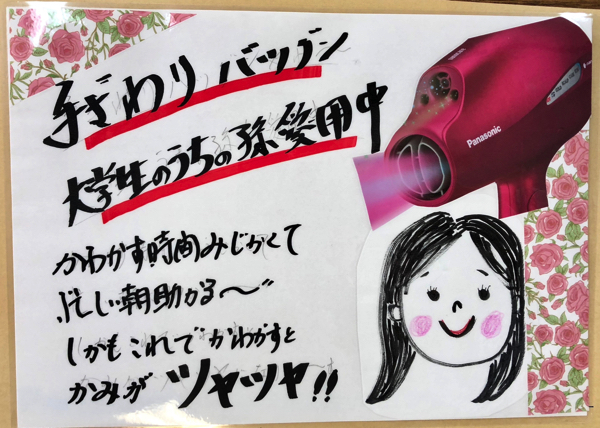 手ざわりバツグン
大学生のうちの孫愛用中
かわかす時間みじかくて
忙しい朝助かる〜"
しかもこれでかわかすと
かみがツヤツヤ!!
Panasonic